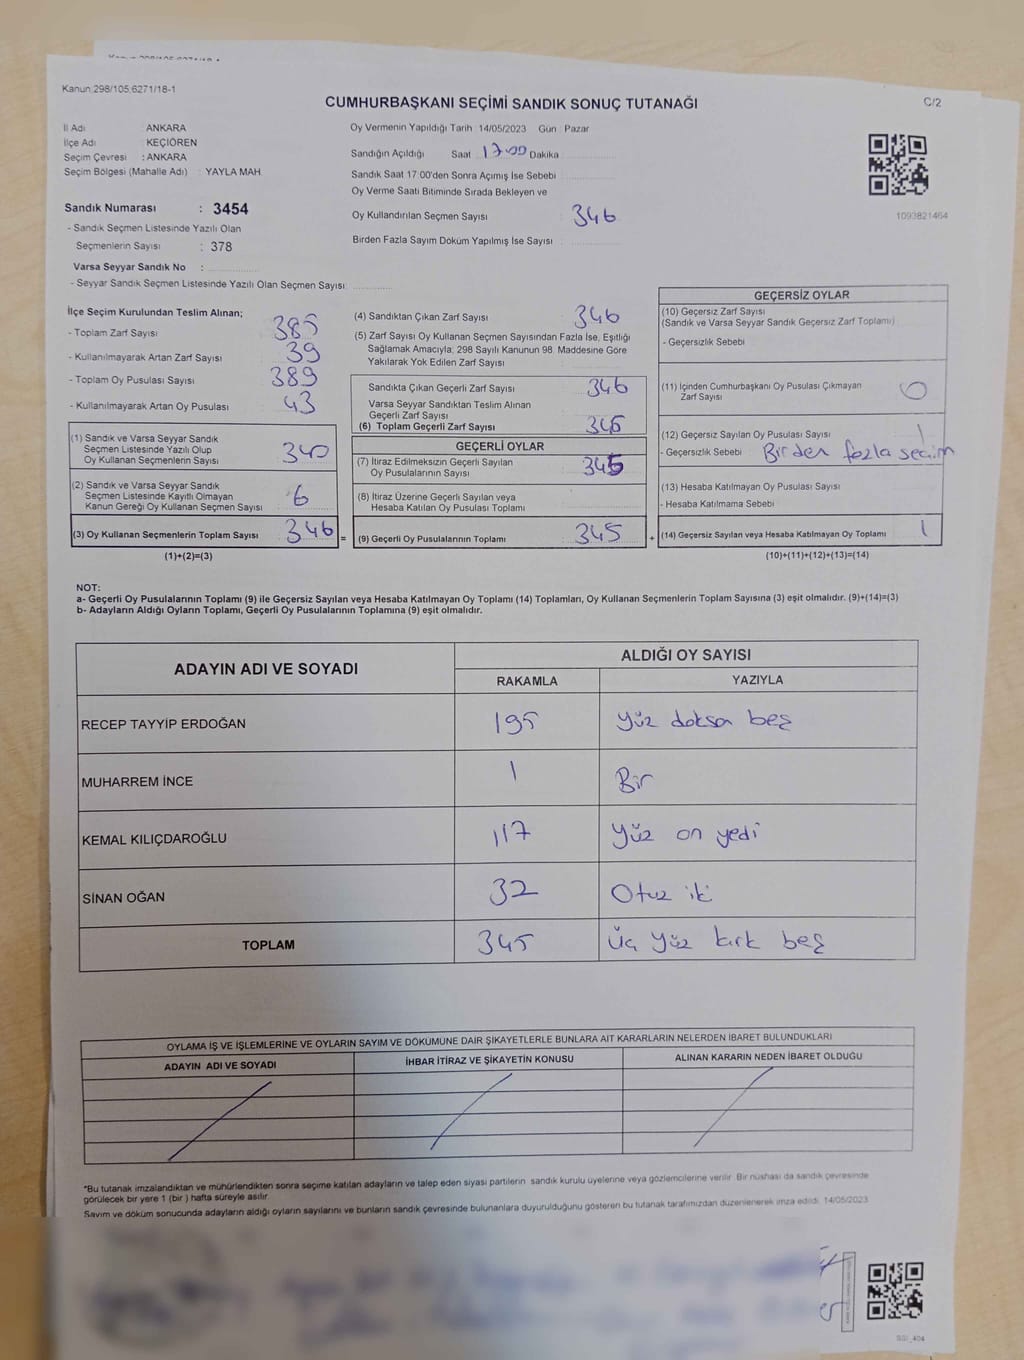 Kanun 298/105 6271/18-1
CUMHURBAŞKANI SEÇİMİ SANDIK SONUÇ TUTANAĞI
C/2
İl Adı : ANKARA
İlçe Adı : KEÇİÖREN
Seçim Çevresi : ANKARA
Seçim Bölgesi (Mahalle Adı) : YAYLA MAH.
Sandık Numarası : 3454
- Sandık Seçmen Listesinde Yazılı Olan
Seçmenlerin Sayısı : 378
Varsa Seyyar Sandık No :
- Seyyar Sandık Seçmen Listesinde Yazılı Olan Seçmen Sayısı:
Oy Vermenin Yapıldığı Tarih 14/05/2023 Gün : Pazar
Sandığın Açıldığı Saat 17.00 Dakika
Sandık Saat 17:00'den Sonra Açımış İse Sebebi
Oy Verme Saati Bitiminde Sırada Bekleyen ve
Oy Kullandırılan Seçmen Sayısı 346
Birden Fazla Sayım Döküm Yapılmış İse Sayısı
1093821464
İlçe Seçim Kurulundan Teslim Alınan;
- Toplam Zarf Sayısı 385
- Kullanılmayarak Artan Zarf Sayısı 39
- Toplam Oy Pusulası Sayısı 389
- Kullanılmayarak Artan Oy Pusulası 43
(1) Sandık ve Varsa Seyyar Sandık
Seçmen Listesinde Yazılı Olup
Oy Kullanan Seçmenlerin Sayısı 340
(2) Sandık ve Varsa Seyyar Sandık
Seçmen Listesinde Kayıtlı Olmayan
Kanun Gereği Oy Kullanan Seçmen Sayısı 6
(3) Oy Kullanan Seçmenlerin Toplam Sayısı 346 =
(1)+(2)=(3)
(4) Sandıktan Çıkan Zarf Sayısı 346
(5) Zarf Sayısı Oy Kullanan Seçmen Sayısından Fazla İse, Eşitliği
Sağlamak Amacıyla; 298 Sayılı Kanunun 98. Maddesine Göre
Yakılarak Yok Edilen Zarf Sayısı
Sandıkta Çıkan Geçerli Zarf Sayısı 346
Varsa Seyyar Sandıktan Teslim Alınan
Geçerli Zarf Sayısı
(6) Toplam Geçerli Zarf Sayısı 346
GEÇERLİ OYLAR
(7) İtiraz Edilmeksizin Geçerli Sayılan
Oy Pusulalarının Sayısı 345
(8) İtiraz Üzerine Geçerli Sayılan veya
Hesaba Katılan Oy Pusulası Toplamı
(9) Geçerli Oy Pusulalarının Toplamı 345 +
GEÇERSİZ OYLAR
(10) Geçersiz Zarf Sayısı
(Sandık ve Varsa Seyyar Sandık Geçersiz Zarf Toplamı)
- Geçersizlik Sebebi
(11) İçinden Cumhurbaşkanı Oy Pusulası Çıkmayan
Zarf Sayısı 0
(12) Geçersiz Sayılan Oy Pusulası Sayısı 1
- Geçersizlik Sebebi Birden fazla seçim
(13) Hesaba Katılmayan Oy Pusulası Sayısı
- Hesaba Katılmama Sebebi
(14) Geçersiz Sayılan veya Hesaba Katılmayan Oy Toplamı 1
(10)+(11)+(12)+(13)=(14)
NOT:
a- Geçerli Oy Pusulalarının Toplamı (9) ile Geçersiz Sayılan veya Hesaba Katılmayan Oy Toplamı (14) Toplamları, Oy Kullanan Seçmenlerin Toplam Sayısına (3) eşit olmalıdır. (9)+(14)=(3)
b- Adayların Aldığı Oyların Toplamı, Geçerli Oy Pusulalarının Toplamına (9) eşit olmalıdır.
ADAYIN ADI VE SOYADI
ALDIĞI OY SAYISI
RAKAMLA YAZIYLA
RECEP TAYYİP ERDOĞAN 195 Yüz doksa beş
MUHARREM İNCE 1 Bir
KEMAL KILIÇDAROĞLU 117 Yüz on yedi
SİNAN OĞAN 32 Otuz iki
TOPLAM 345 Üç Yüz kırk beş
OYLAMA İŞ VE İŞLEMLERİNE VE OYLARIN SAYIM VE DÖKÜMÜNE DAİR ŞİKAYETLERLE BUNLARA AİT KARARLARIN NELERDEN İBARET BULUNDUKLARI
ADAYIN ADI VE SOYADI
İHBAR İTİRAZ VE ŞİKAYETİN KONUSU
ALINAN KARARIN NEDEN İBARET OLDUĞU
*Bu tutanak imzalandıktan ve mühürlendikten sonra seçime katılan adayların ve talep eden siyasi partilerin sandık kurulu üyelerine veya gözlemcilerine verilir. Bir nüshası da sandık çevresinde
görülecek bir yere 1 (bir ) hafta süreyle asılır.
Sayım ve döküm sonucunda adayların aldığı oyların sayılarını ve bunların sandık çevresinde bulunanlara duyurulduğunu gösteren bu tutanak tarafımızdan düzenlenerek imza edildi. 14/05/2023